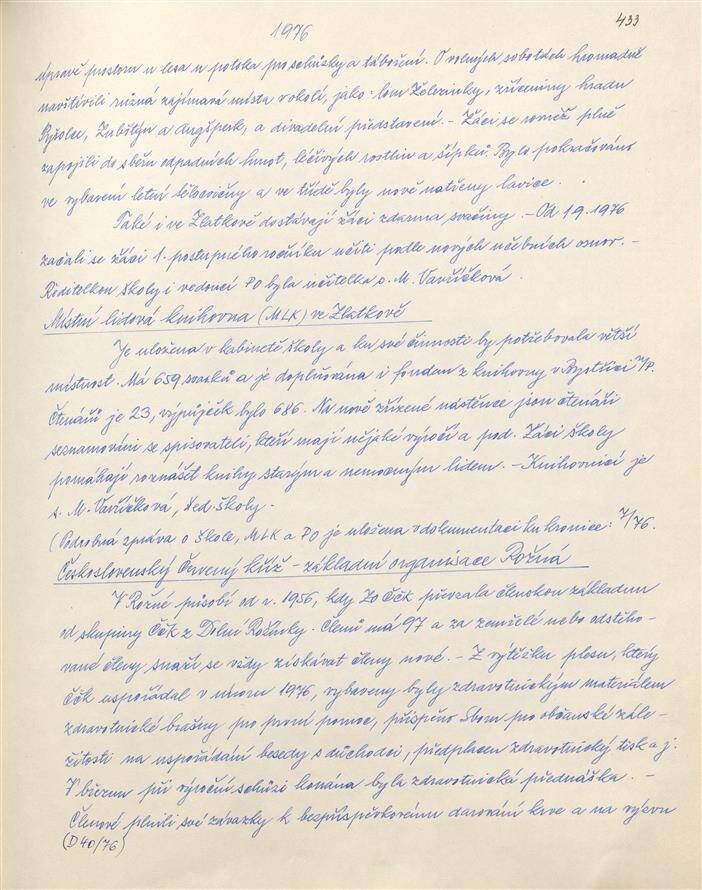 1976
433
úpravě prostoru u lesa u potoka pro schůzky a táboření. O volných sobotách hromadně
navštívili různá zajímavá místa v okolí, jako: lom Železinky, zříceniny hradu
Pyšolec, Zubštýn a Augšperk, a divadelní představení. – Žáci se rovněž plně
zapojili do sběru odpadních hmot, léčivých rostlin a šípků. Bylo pokračováno
ve vybavení letní tělocvičny a ve třídě byly nově natřeny lavice.
Také i ve Zlatkově dostávají žáci zdarma svačiny. – Od 1.9.1976
začali se žáci 1. postupného ročníku učiti podle nových učebních osnov. –
Ředitelkou školy i vedoucí PO byla učitelka s. M. Vavříčková.
Místní lidová knihovna (MLK) ve Zlatkově
Je uložena v kabinetě školy a ku své činnosti by potřebovala větší
místnost. Má 659 svazků a je doplňována i fondem z knihovny v Bystřici n/P.
Čtenářů je 23, výpůjček bylo 686. Na nově zřízené nástěnce jsou čtenáři
seznamováni se spisovateli, kteří mají nějaké výročí a pod. Žáci školy
pomáhají roznášet knihy starým a nemocným lidem. – Knihovnicí je
s. M. Vavříčková, řed. školy.
(Podrobná zpráva o škole, MLK a PO je uložena v dokumentaci ku kronice: 7/76.
Československý Červený kříž – základní organisace Rožná
V Rožné působí od r. 1956, kdy ZO ČčK převzala členskou základnu
od skupiny ČčK z Dolní Rožínky. Členů má 97 a za zemřelé nebo odstěho-
vané členy snaží se vždy získávat členy nové. – Z výtěžku plesu, který
ČčK uspořádal v únoru 1976, vybaveny byly zdravotnickým materiálem
zdravotnické brašny pro první pomoc, přispěno Sboru pro občanské zále-
žitosti na uspořádání besedy s důchodci, předplacen zdravotnický tisk a j.
V březnu při výroční schůzi konána byla zdravotnická přednáška. –
Členové plnili své závazky k bezpříspěvkovému darování krve a na výzvu
(D40/76)